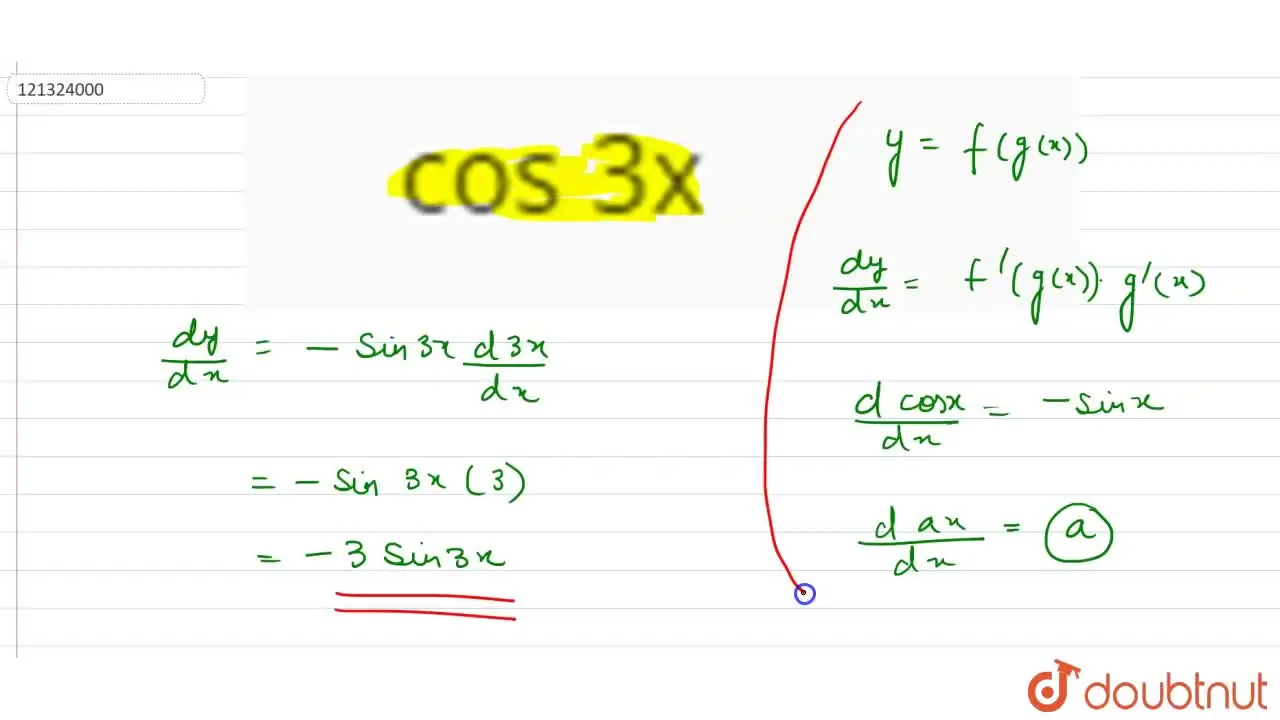 121324000
cos 3x
dy/dx = - Sin 3x d 3x/dx
= - Sin 3x (3)
= - 3 Sin 3x
y = f(g(x))
dy/dx = f'(g(x)). g'(x)
d cosx/dx = - sin x
d ax/dx = a
doubtnut